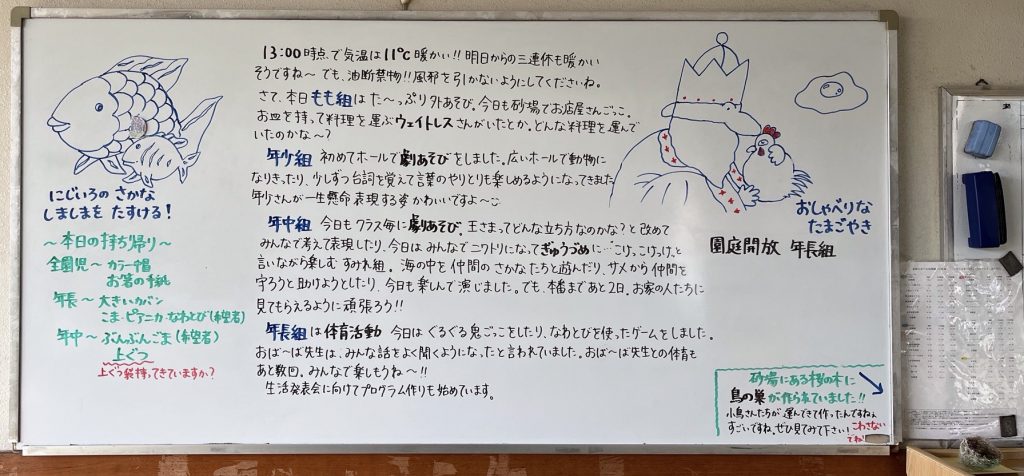 13:00時点で気温は11℃暖かい!! 明日からの三連休も暖かい
そうですね～でも、油断禁物!! 風邪を引かないようにしてくださいね。
さて、本日もも組はた～っぷり外あそび。今日も砂場でお店屋さんごっこ。
お皿を持って料理を運ぶウェイトレスさんがいたとか。どんな料理を運んで
いたのかな～?
年少組 初めてホールで劇あそびをしました。広いホールで動物に
なりきったり、少しずつ台詞を覚えて言葉のやりとりも楽しめるようになってきました
年少さんが一生懸命表現する姿かわいいですよ～
年中組 今日もクラス毎に劇あそび。王さまってどんな立ち方なのかな?と改めて
みんなで考えて表現したり、今日はみんなでニワトリになってぎゅうづめに…こけっこけっと
言いながら楽しむすみれ組。海の中を仲間のさかなたちと遊んだり、サメから仲間を
守ろうと助けようとしたり、今日も楽しんで演じました。でも、本番まであと2日。お家の人たちに
見てもらえるように頑張ろう!!
年長組は体育活動 今日はぐるぐる鬼ごっこをしたり、なわとびを使ったゲームをしました。
おば～ば先生は、みんな話をよく聞くようになったと言われていました。おば～ば先生との体育も
あと数回。みんなで楽しもうね～!!
生活発表会に向けてプログラム作りも始めています。
にじいろの さかな
しましまを たすける!
～本日の持ち帰り～
全園児～カラー帽
お箸の手紙
年長～大きいカバン
こま・ピアニカ・なわとび(希望者)
年中～ぶんぶんごま(希望者)
上ぐつ
上ぐつ袋持ってきていますか?
おしゃべりな
たまごやき
園庭開放 年長組
砂場にある桜の木に
鳥の巣が作られていました!!
小鳥さんたちが運んできて作ったんですねぇ
すごいですね。ぜひ見てみて下さい!
こわさない
でね!